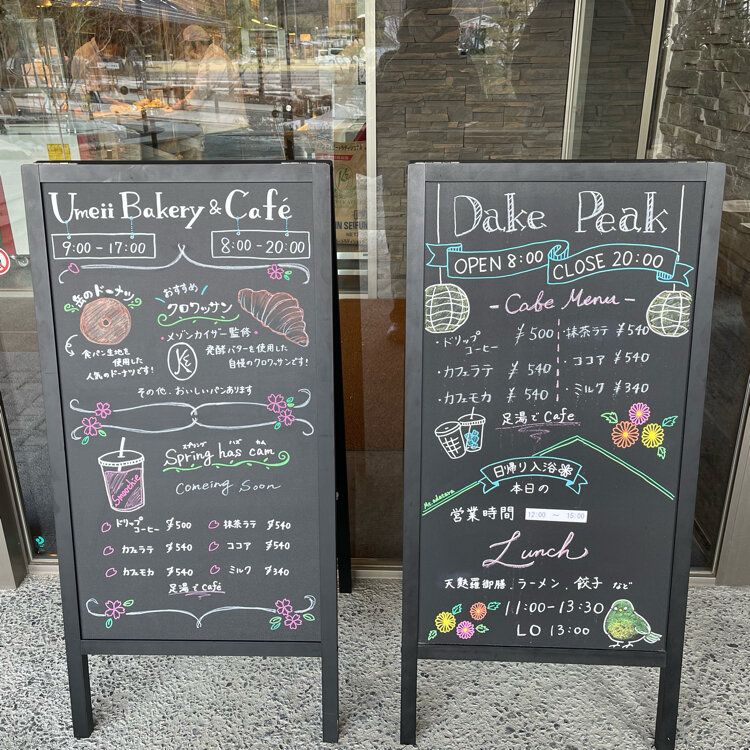 Umeii Bakery & Café
9:00 - 17:00
8:00 - 20:00
おすすめ
クロワッサン
・メゾンカイザー監修・
発酵バターを使用した
自慢のクロワッサンです!
のドーナツ
食パン生地を
使用した
人気のドーナツです!
その他、おいしいパンあります
スプリング ハズ カム
Spring has cam
Comeing Soon
Smoothie
ドリップコーヒー ¥500
抹茶ラテ ¥540
カフェラテ ¥540
ココア ¥540
カフェモカ ¥540
ミルク ¥340
足湯でCafé
Dake Peak
OPEN 8:00
CLOSE 20:00
- Cafe Menu -
・ドリップコーヒー ¥500
・抹茶ラテ ¥540
・カフェラテ ¥540
・ココア ¥540
・カフェモカ ¥540
・ミルク ¥340
足湯でCafe
日帰り入浴
本日の
営業時間 12:00 ～ 15:00
Lunch
天麩羅御膳、ラーメン、餃子 など
11:00-13:30
LO 13:00